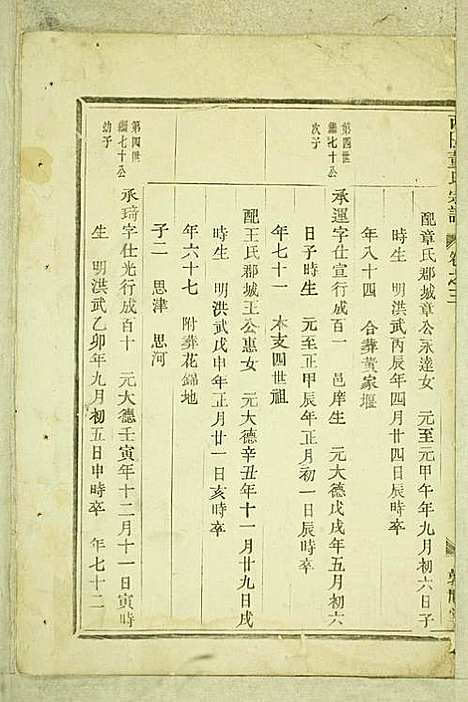 董氏宗譜
卷之三
配章氏郡城章公永達女　元至元甲午年九月初六日子
時生　明洪武丙辰年四月廿四日辰時卒
年八十四　合葬黃家堰
第四世
繼七十公
次子
承運字仕宣行成百一　邑庠生　元大德戊戌年五月初六
日子時生　元至正甲辰年正月初一日辰時卒
年七十一　本支四世祖
配王氏郡城王公惠女　元大德辛丑年十一月廿九日戌
時生　明洪武戊申年正月廿一日亥時卒
年六十七　附葬花錦地
子二　思津　思河
第四世
繼七十公
幼子
承琦字仕光行成百十　元大德壬寅年十二月十一日寅時
生　明洪武乙卯年九月初五日申時卒　年七十二